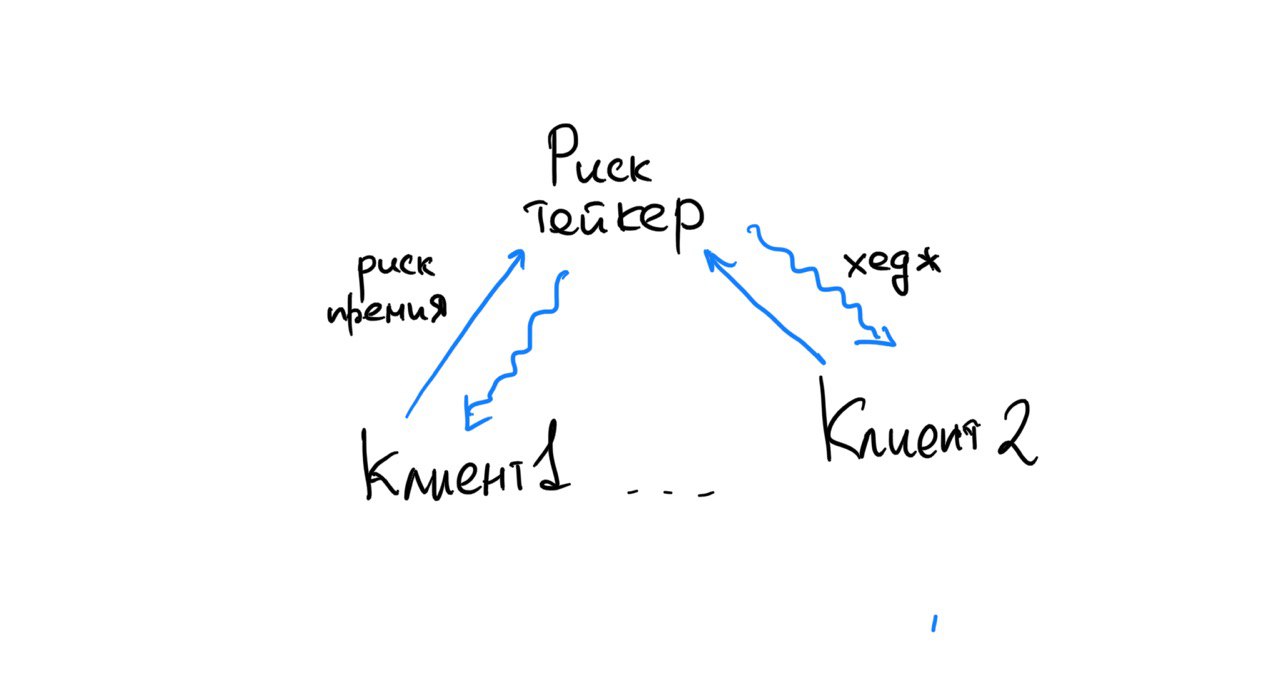 Риск
тейкер
риск
премия
хед*
Клиент 1
- - -
Клиент 2